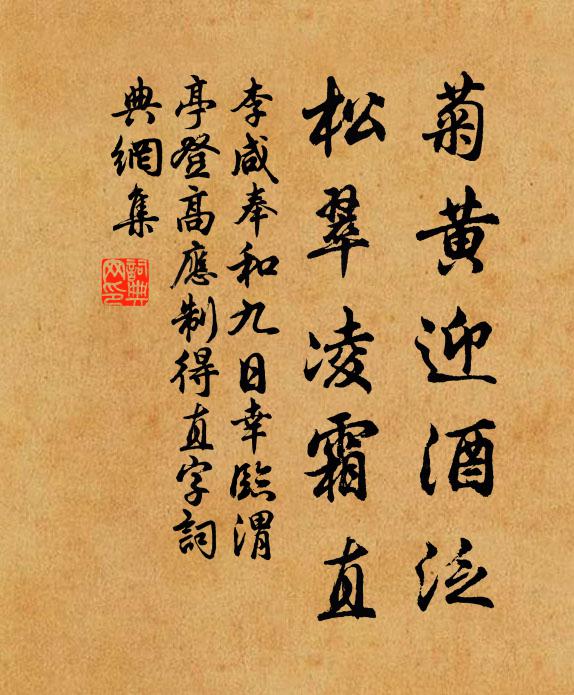 菊黄迎酒泛
松翠凌霜直
李咸奉和九日幸臨渭
亭登高應制得直字詞
典網集
詞典网印